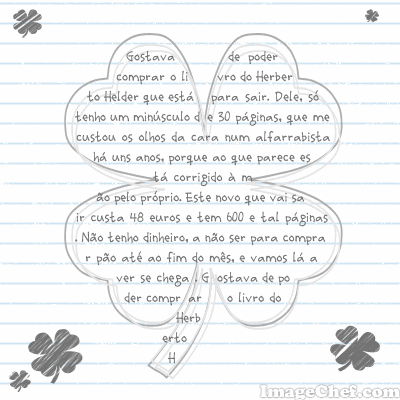 Gostava de poder
comprar o li vro do Herber
to Helder que está para sair. Dele, só
tenho um minúsculo d e 30 páginas, que me
custou os olhos da cara num alfarrabista
há uns anos, porque ao que parece es
tá corrigido à m
ão pelo próprio. Este novo que vai sa
ir custa 48 euros e tem 600 e tal páginas
. Não tenho dinheiro, a não ser para compra
r pão até ao fim do mês, e vamos lá a
ver se chega . G ostava de po
der compr ar o livro do
Herb
erto
H
ImageChef.com